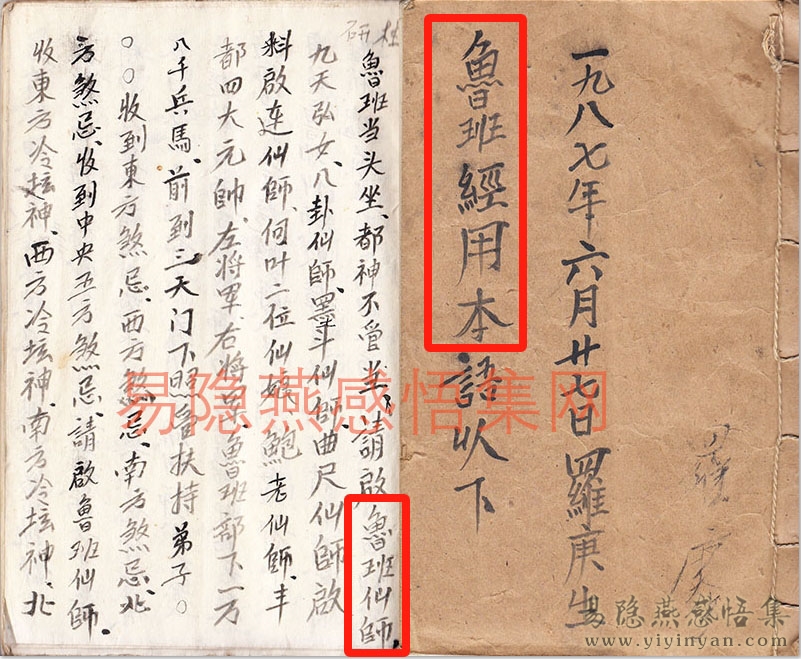 一九八七年六月廿七日羅庚生
魯班經用本語以下
魯班当头坐、都神不曾坐、請啟魯班仙師、
九天弘女、八卦仙師、墨斗仙師、曲尺仙師、啟
料啟連仙師、何叶二位仙娘、鮑老仙師、丰
都四大元帥、左將軍、右將軍、魯班部下一万
八千兵馬、前到三天门下照曾扶持弟子○
○○收到東方煞忌、西方煞忌、南方煞忌、北
方煞忌、收到中央五方煞忌、請啟魯班仙師、
收東方冷坛神、西方冷坛神、南方冷坛神、北
易隐燕感悟集网
易隐燕感悟集
www.yiyinyan.com